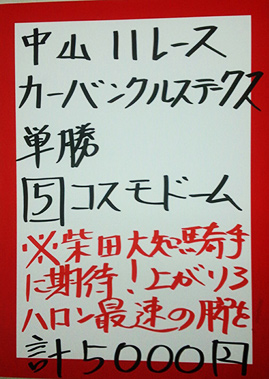 中山11レース
カーバンクルステークス
単勝
5コスモドーム
※柴田大知騎手
に期待!上がり3
ハロン最速の脚を
計5000円